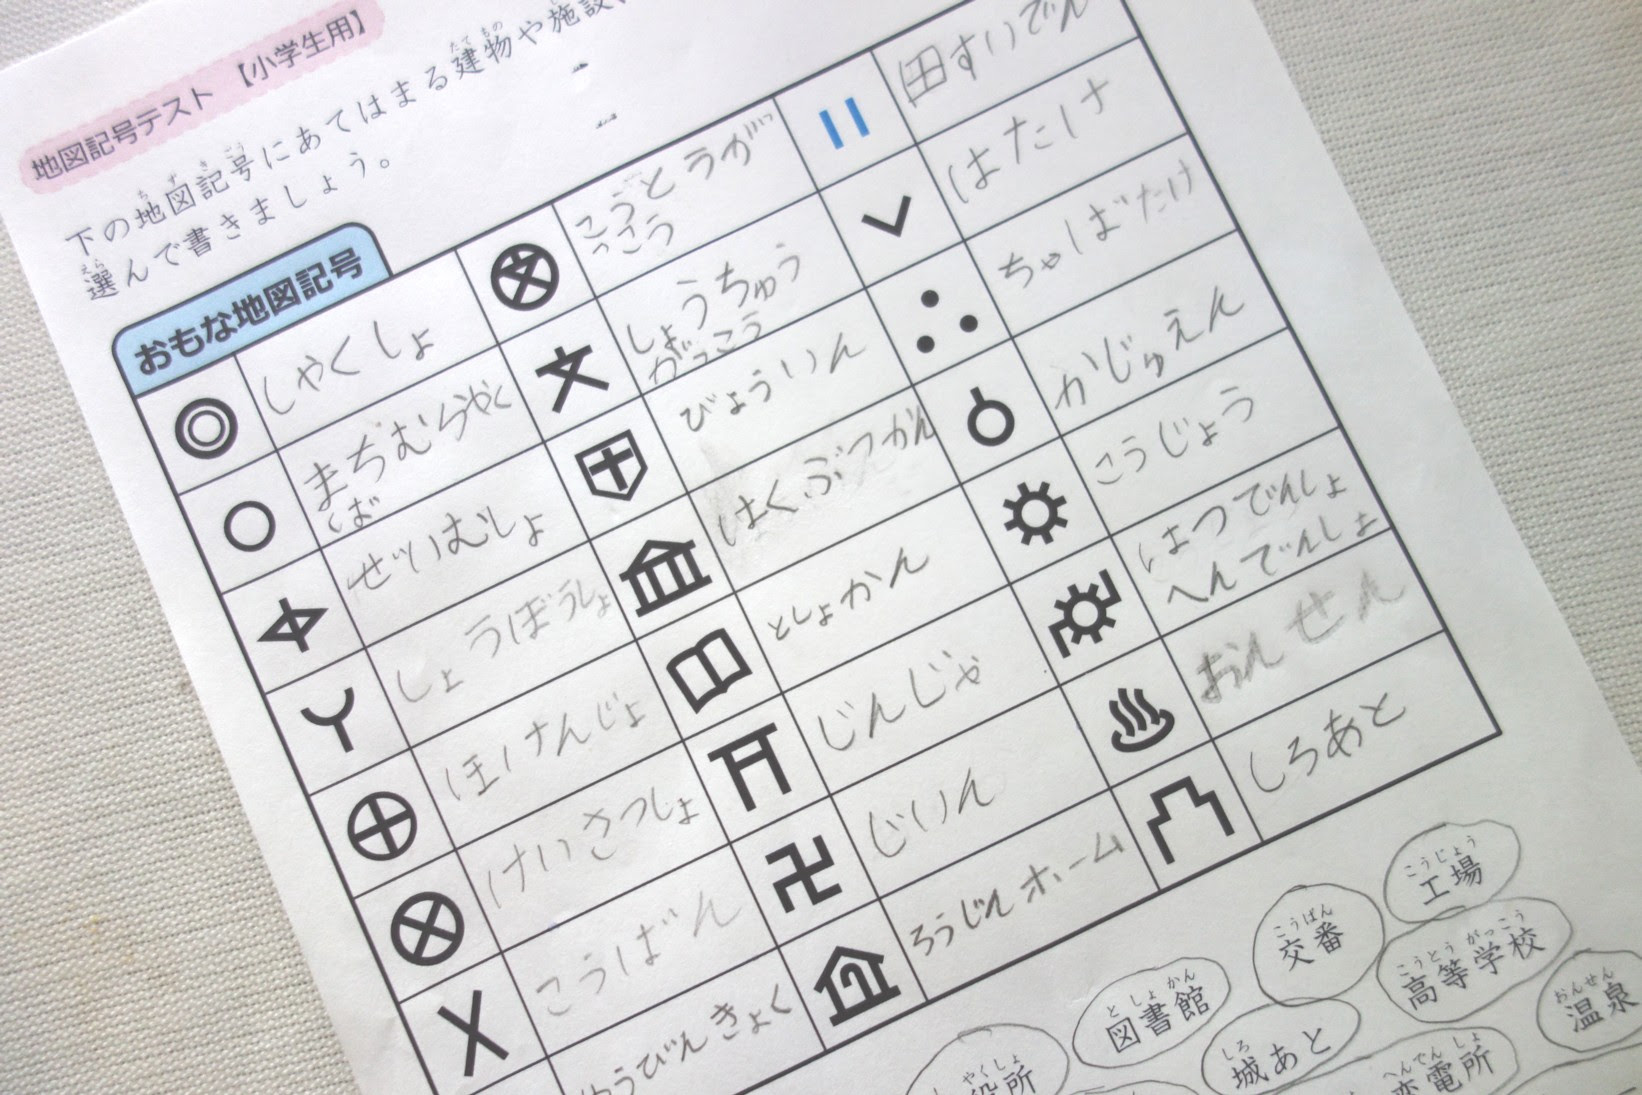 地図記号テスト【小学生用】
下の地図記号にあてはまる建物や施設
選んで書きましょう。
おもな地図記号
しゃくしょ
まちむらやく
ば
ぜいむしょ
しょうぼうしょ
ほけんじょ
けいさつしょ
こうばん
ゆうびんきょく
こうとうがっ
こう
しょうちゅう
がっこう
びょういん
はくぶつかん
としょかん
じんじゃ
じいん
ろうじんホーム
田すいでん
はたけ
ちゃばたけ
かじゅえん
こうじょう
はつでんしょ
へんでんしょ
おんせん
しろあと
工場
交番
高等学校
図書館
城あと
温泉
変電所
役所